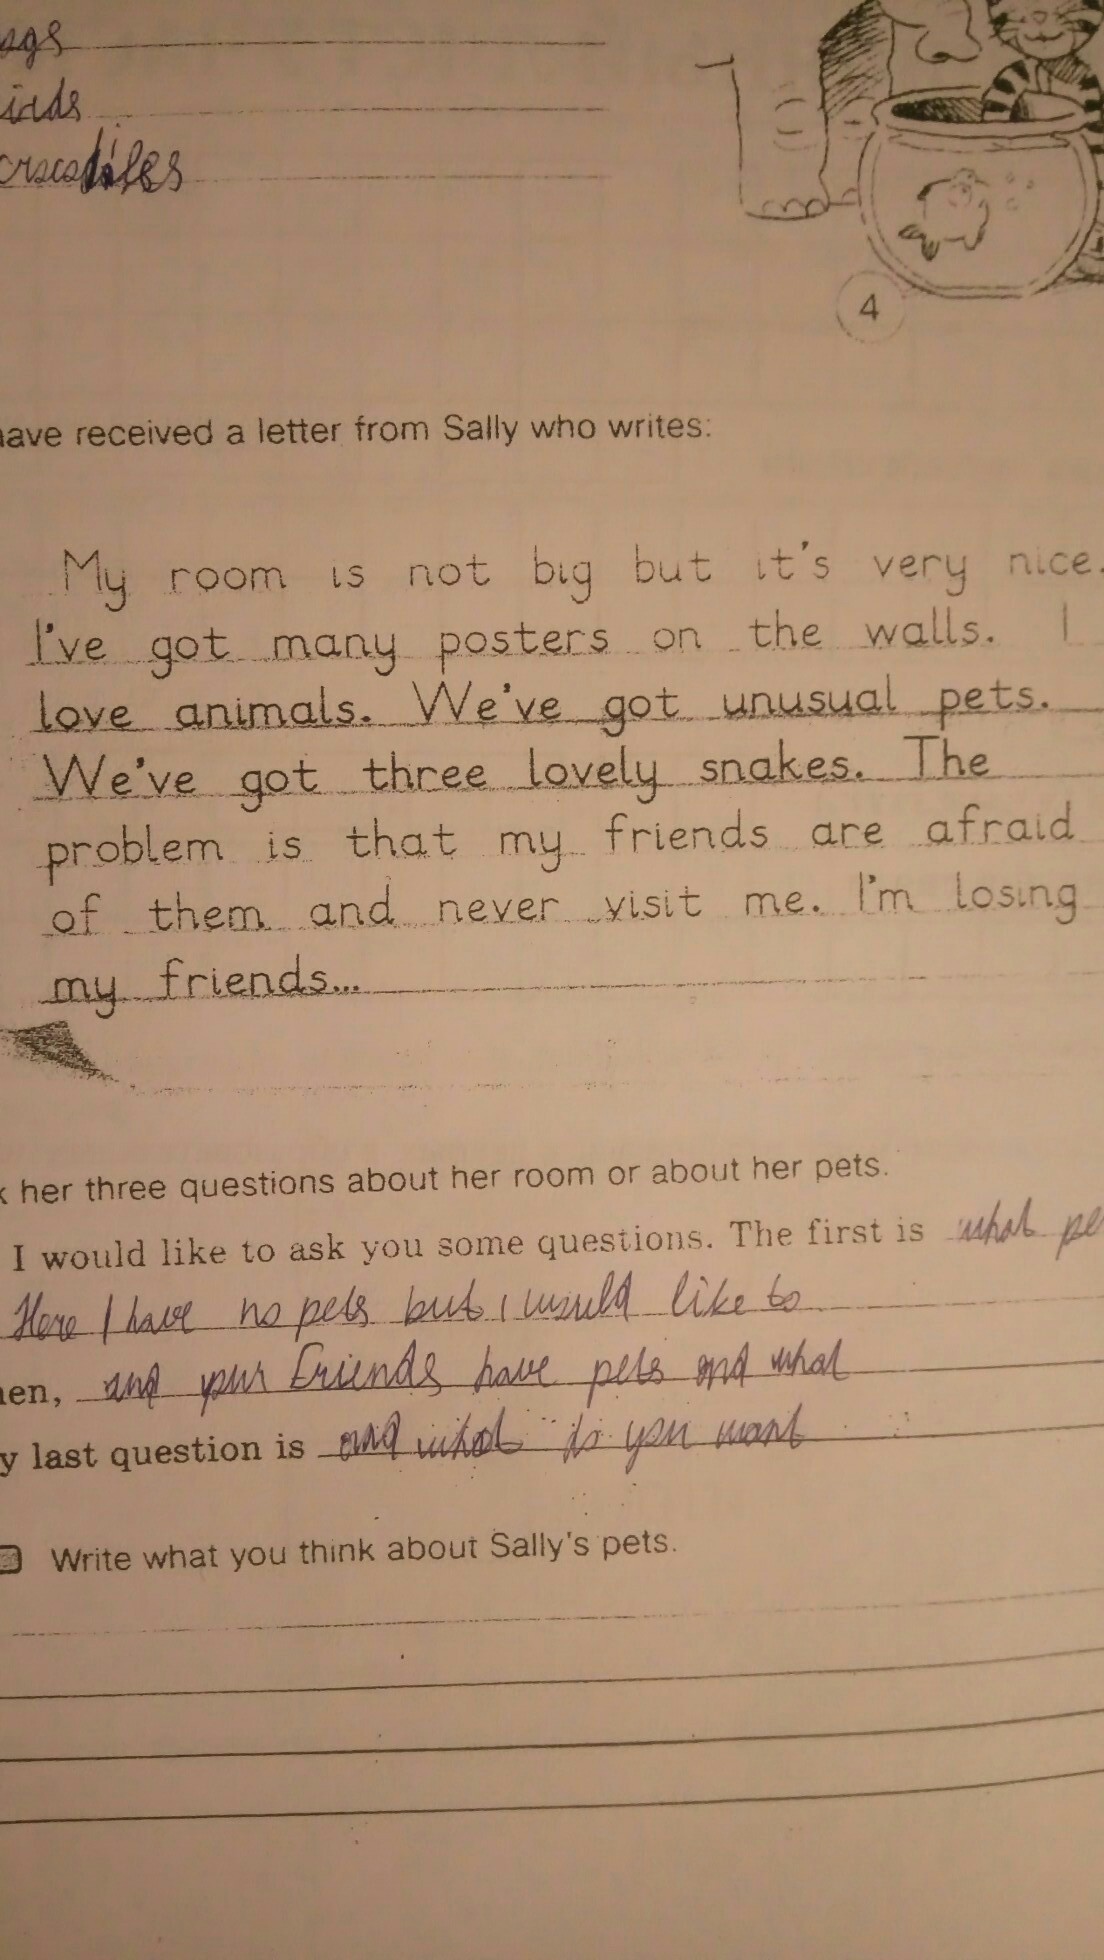 4
have received a letter from Sally who writes:
My room is not big but it's very nice.
I've got many posters on the walls. I
love animals. We've got unusual pets.
We've got three lovely snakes. The
problem is that my friends are afraid
of them and never visit me. I'm losing
my friends...
her three questions about her room or about her pets.
I would like to ask you some questions. The first is what pe
Here I have no pets but I would like to
and your friends have pets and what
y last question is and what do you want
Write what you think about Sally's pets.